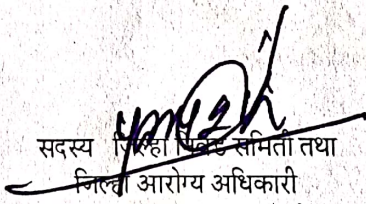 सदस्य जिल्हा निवड समिती तथा
जिल्हा आरोग्य अधिकारी